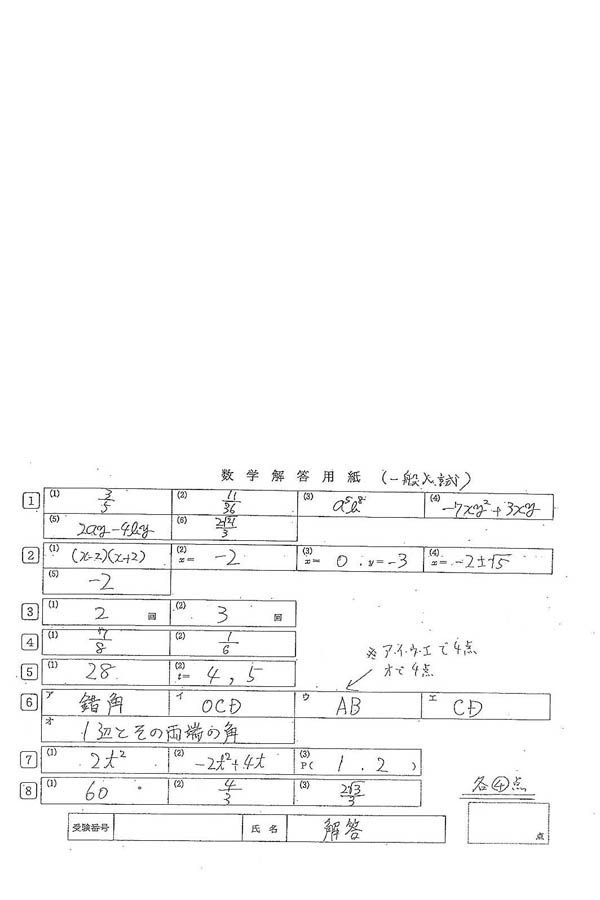 数学解答用紙 (一般入試)
1 (1) 3/5 (2) 11/36 (3) a⁵b⁸ (4) -7xy²+3xy
(5) 2ay-4by (6) 2√21/3
2 (1) (x-2)(x+2) (2) x= -2 (3) x= 0 . y= -3 (4) x= -2±√5
(5) -2
3 (1) 2 回 (2) 3 回
4 (1) 7/8 (2) 1/6
※ア.イ.ウ.エで4点
オで4点
5 (1) 28 (2) t= 4, 5
6 ア 錯角 イ OCD ウ AB エ CD
オ 1辺とその両端の角
7 (1) 2t² (2) -2t²+4t (3) P( 1 . 2 )
8 (1) 60 ° (2) 4/3 (3) 2√3/3
各④点
受験番号 氏名 解答 点